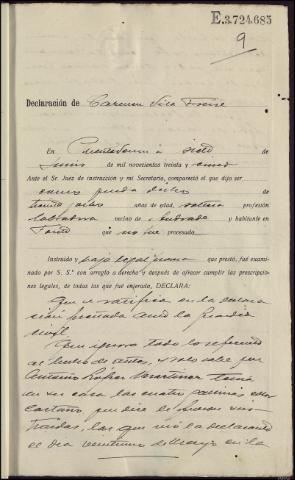 E.3.724.685
9
Declaración de Carmen
En Puentedeume a siete de
Junio de mil novecientos treinta y cinco
Ante el Sr. Juez de instrucción y mi Secretario, compareció el que dijo ser
como queda dicho de
treinta años de edad, soltera profesión
labradora vecino de Andrade y habitante en
que no fue procesada.
Instruído y bajo legal que prestó, fué examinado
por S. S.ª con arreglo a derecho y después de ofrecer cumplir las prescripciones
legales, de todas las que fué enjerada, DECLARA:
Que se ratifica en la declara
ción prestada ante la Guardia
civil
Que ignora todo lo referente
al hecho de autos, y solo sabe que
Antonio López Martínez tenía
en su casa las cuatro gavinas
que dice le fueron sus
traidas, las que vió la declarante
el dia veintiuno de Mayo en la